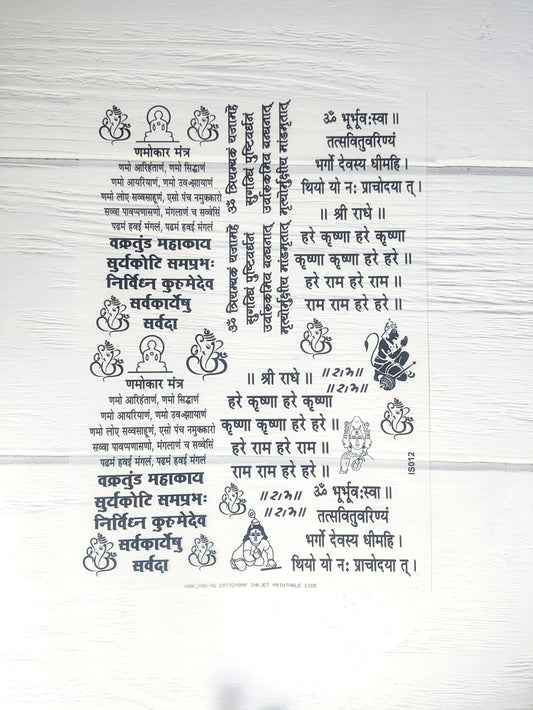 णमोकार मंत्र
णमो आरिहंताणं, णमो सिद्धाणं
णमो आयरियाणं, णमो उवज्झायाणं
णमो लोए सव्वसाहूणं, एसो पंच नमुक्कारो
सव्वा पावप्पणासणो, मंगलाणं च सव्वेसिं
पढमं हवई मंगलं, पढमं हवई मंगलं
वक्रतुंड महाकाय
सुर्यकोटि समप्रभः
निर्विघ्न कुरुमेदेव
सर्वकार्येषु
सर्वदा
ॐ त्रियम्बकं यजामहे
सुगन्धिं पुष्टिवर्धनं
उर्वारुकमिव बन्धनात्
मृत्योर्मुक्षीय मांडमृतात्
ॐ त्रियम्बकं यजामहे
सुगन्धिं पुष्टिवर्धनं
उर्वारुकमिव बन्धनात्
मृत्योर्मुक्षीय मांडमृतात्
ॐ भूर्भूवःस्वा ॥
तत्सवितुवरिण्यं
भर्गो देवस्य धीमहि ।
थियो यो नः प्राचोदया त् ।
॥ श्री राधे ॥
हरे कृष्णा हरे कृष्णा
कृष्णा कृष्णा हरे हरे ॥
हरे राम हरे राम ।
राम राम हरे हरे ॥
णमोकार मंत्र
णमो आरिहंताणं, णमो सिद्धाणं
णमो आयरियाणं, णमो उवज्झायाणं
णमो लोए सव्वसाहूणं, एसो पंच नमुक्कारो
सव्वा पावप्पणासणो, मंगलाणं च सव्वेसिं
पढमं हवई मंगलं, पढमं हवई मंगलं
वक्रतुंड महाकाय
सुर्यकोटि समप्रभः
निर्विघ्न कुरुमेदेव
सर्वकार्येषु
सर्वदा
॥ श्री राधे ॥
॥राम॥
॥राम॥
हरे कृष्णा हरे कृष्णा
कृष्णा कृष्णा हरे हरे ॥
हरे राम हरे राम ॥
राम राम हरे हरे ॥
॥राम॥
॥राम॥
ॐ भूर्भूवःस्वा ॥
तत्सवितुवरिण्यं
भर्गो देवस्य धीमहि ।
थियो यो नः प्राचोदया त् ।
IS012
297X210MM INKJET PRINTABLE SIDE